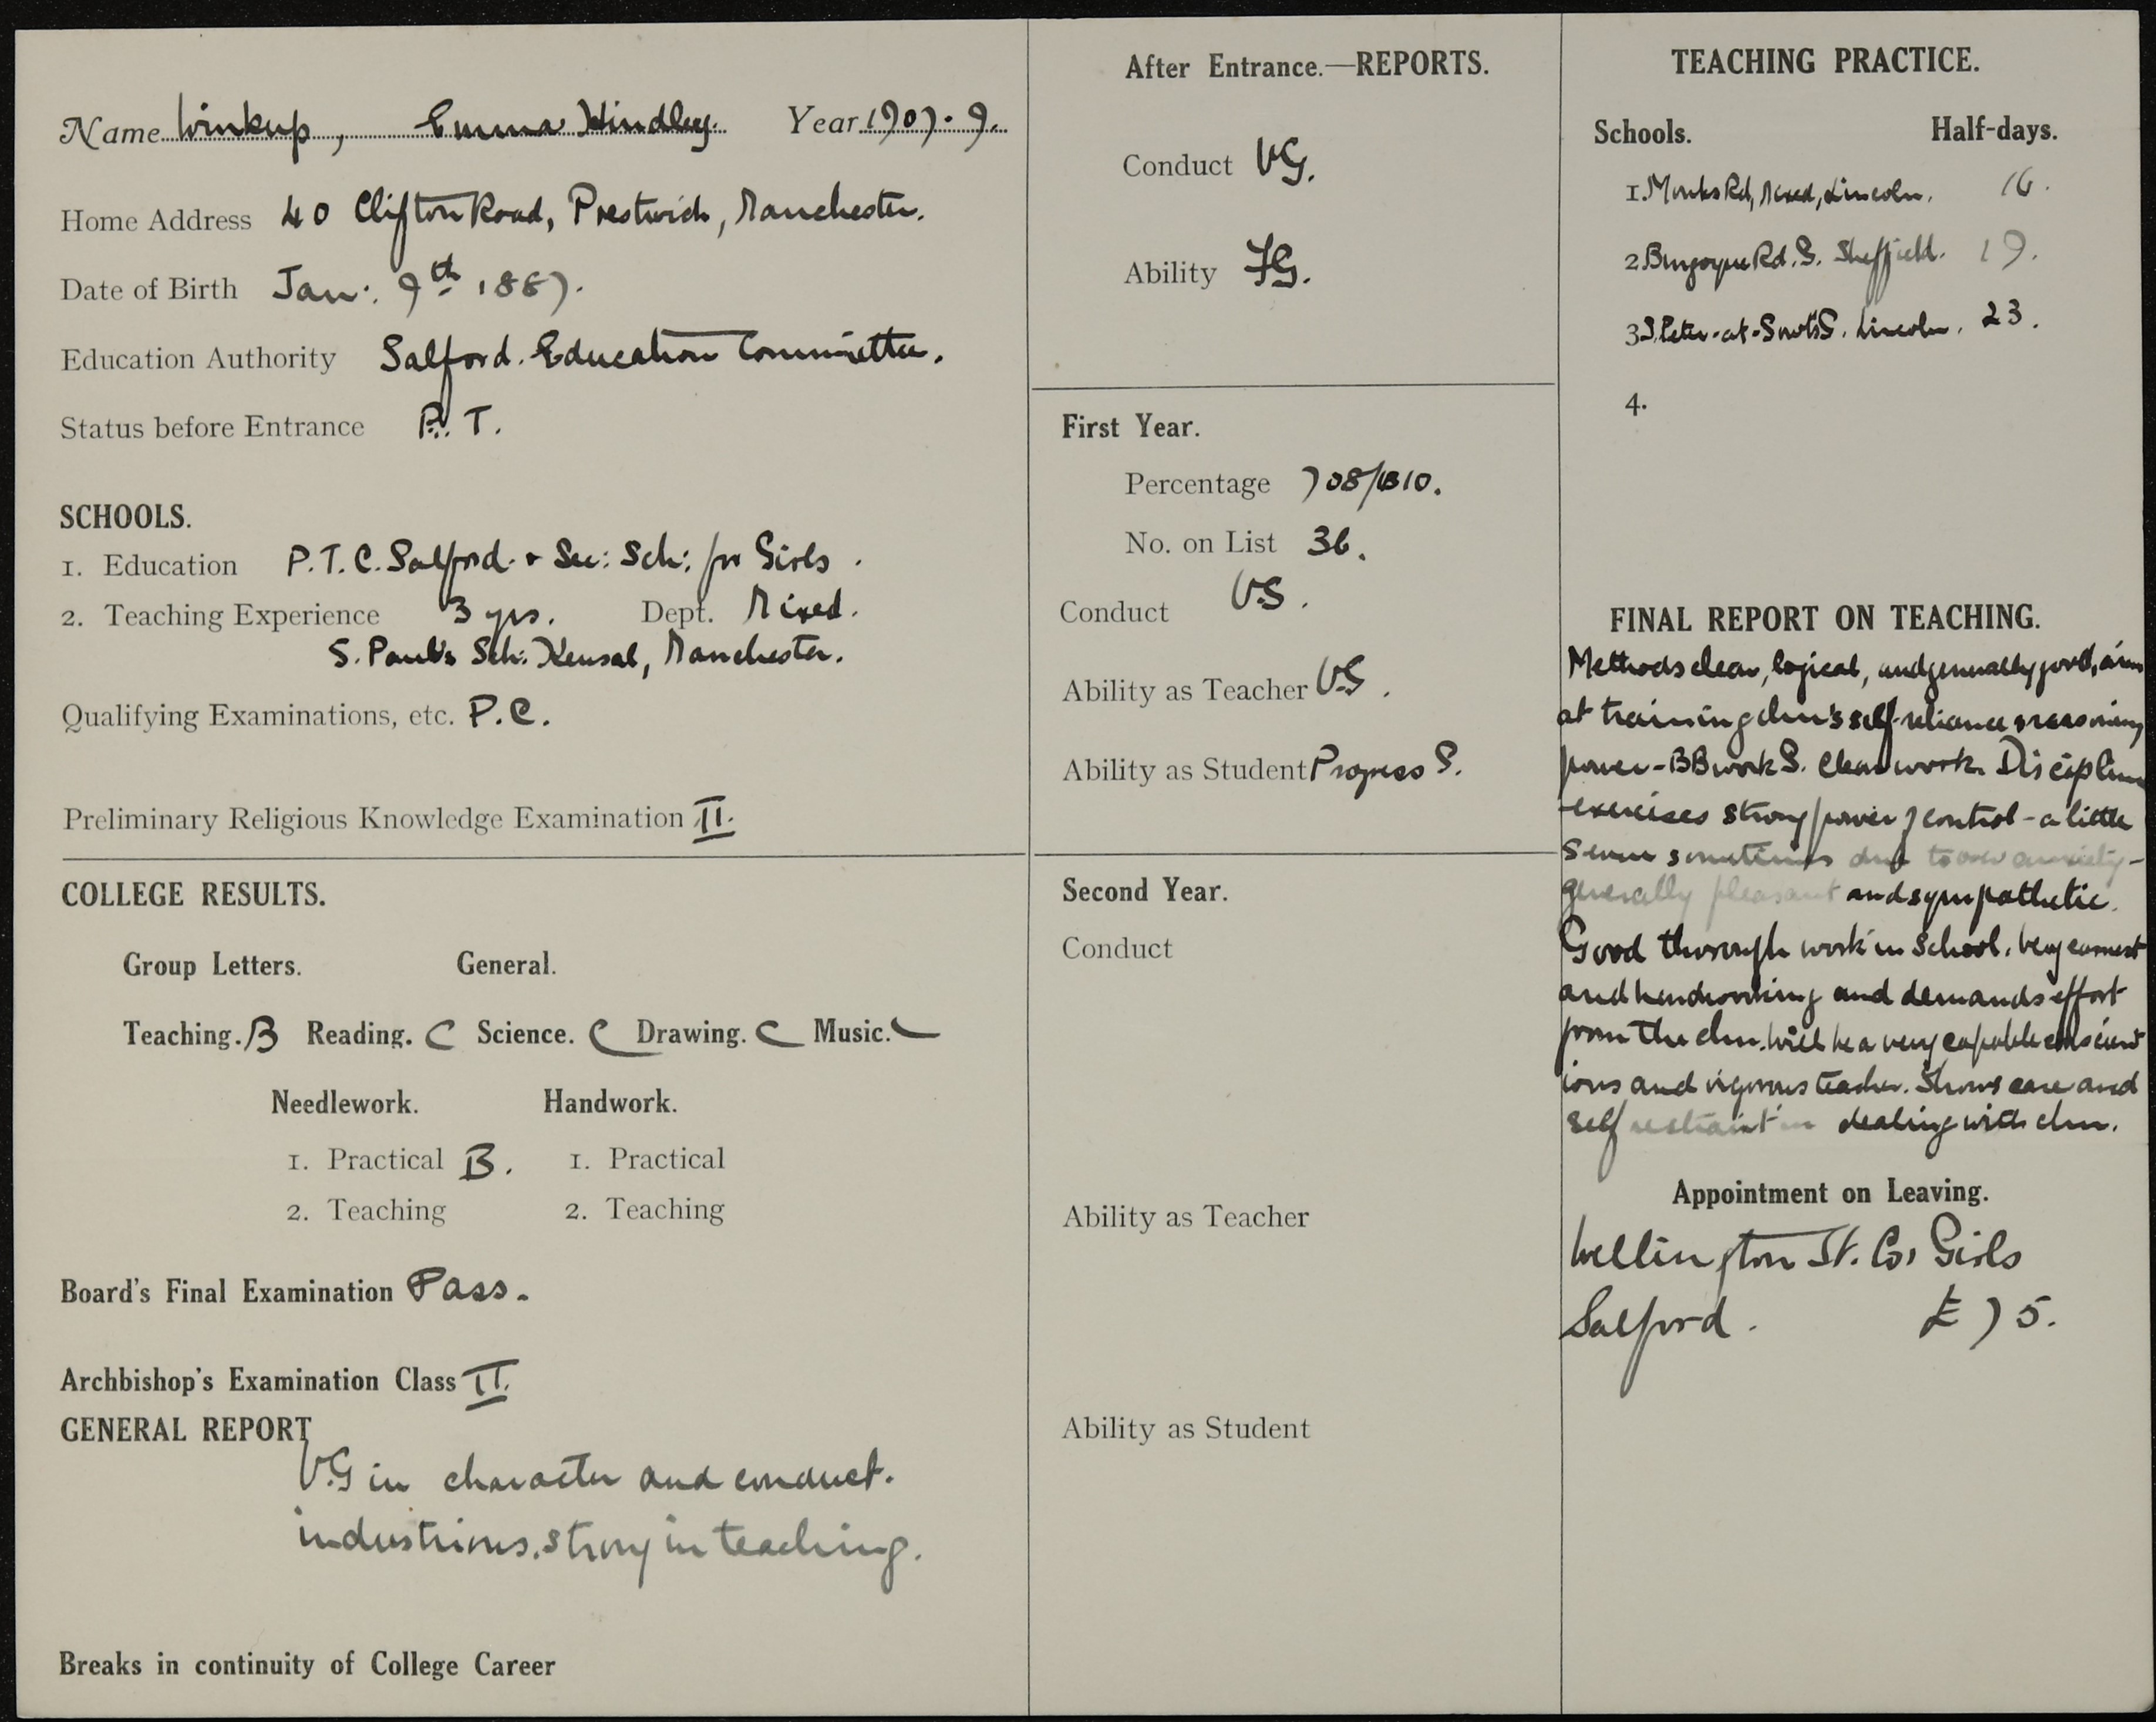 Name Winkup, Emma Hindley. Year 1907-9.
Home Address 40 Clifton Road, Prestwich, Manchester.
Date of Birth Jan: 9th 1887.
Education Authority Salford. Education Committee.
Status before Entrance P. T.
SCHOOLS.
1. Education P.T.C. Salford. & Sec: Sch: for Girls.
2. Teaching Experience 3 yrs. Dept. Mixed.
S. Paul's Sch: Kersal, Manchester.
Qualifying Examinations, etc. P.C.
Preliminary Religious Knowledge Examination II.
COLLEGE RESULTS.
Group Letters. General.
Teaching. B Reading. C Science. C Drawing. C Music.
Needlework. Handwork.
1. Practical B. 1. Practical
2. Teaching 2. Teaching
Board's Final Examination Pass.
Archbishop's Examination Class II.
GENERAL REPORT
V.G in character and conduct.
industrious. strong in teaching.
Breaks in continuity of College Career
After Entrance.—REPORTS.
Conduct VG.
Ability FG.
First Year.
Percentage 708/1310.
No. on List 36.
Conduct V.G.
Ability as Teacher V.G.
Ability as Student Progress G.
Second Year.
Conduct
Ability as Teacher
Ability as Student
TEACHING PRACTICE.
Schools. Half-days.
1. Monks Rd, Mixed, Lincoln. 16.
2. Burgoyne Rd. G. Sheffield. 19.
3 S. Peter-at-Gowts G. Lincoln. 23.
4.
FINAL REPORT ON TEACHING.
Methods clear, logical, and generally good, aim
at training chn's self-reliance & reasoning
power - BB work G. Clear work. Discipline
-exercises strong power of control - a little
severe sometimes due to over anxiety -
generally pleasant and sympathetic.
Good thorough work in School. Very earnest
and hardworking and demands effort
from the chn. Will be a very capable conscient
ious and vigorous teacher. Shows care and
self restraint in dealing with chn.
Appointment on Leaving.
Wellington St. Co, Girls
Salford. £75.